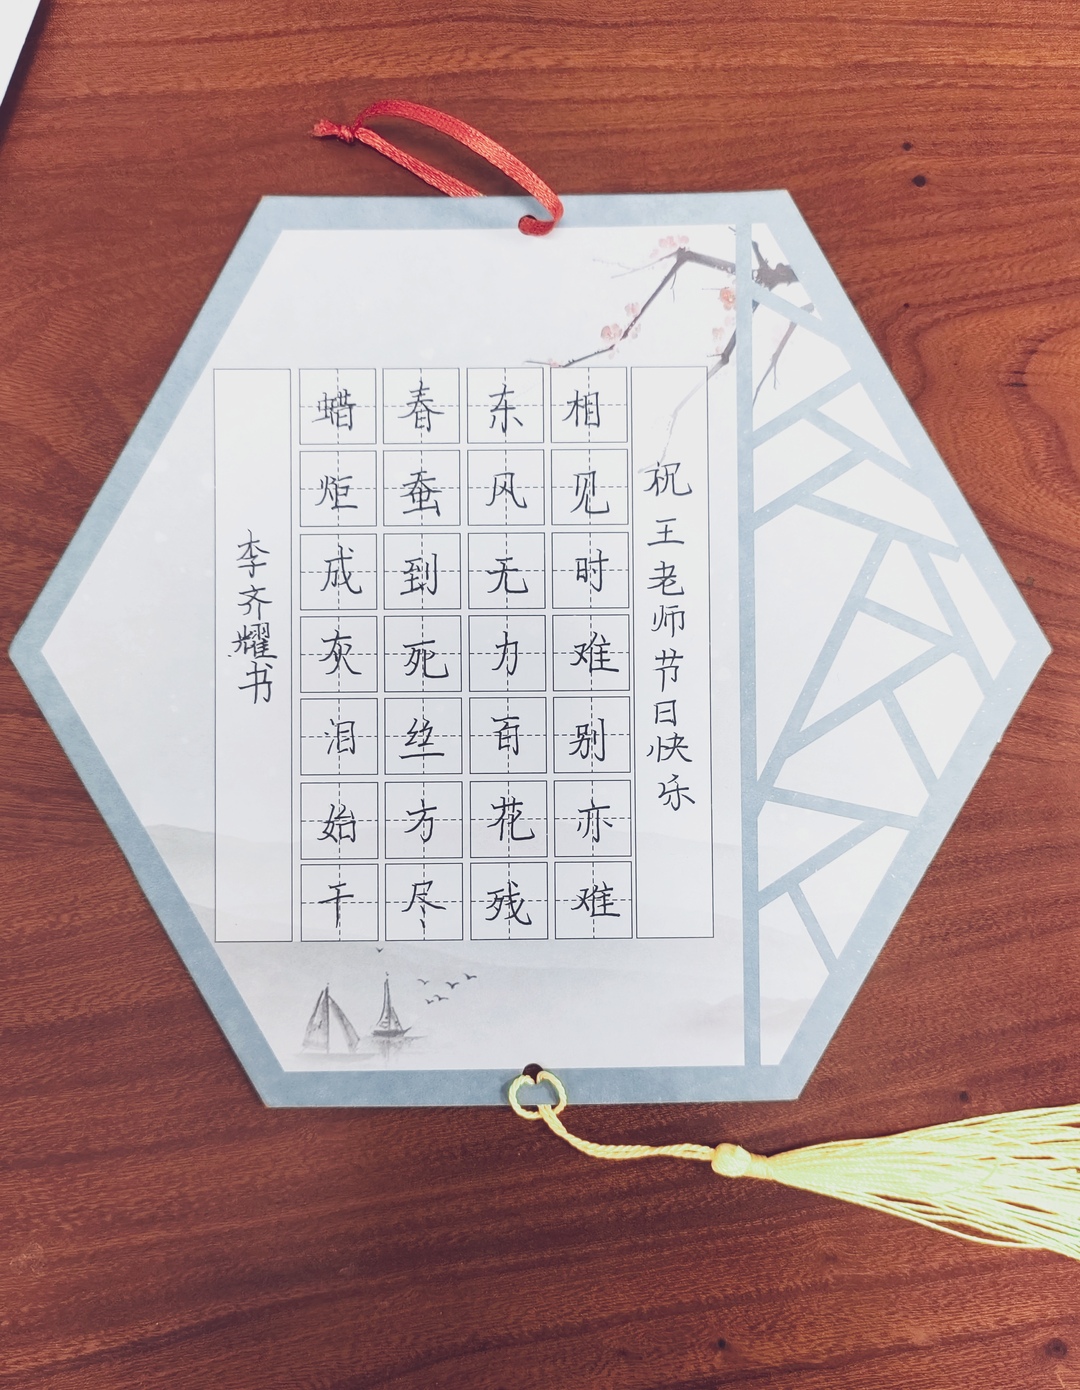 祝王老师节日快乐
相见时难别亦难
东风无力百花残
春蚕到死丝方尽
蜡炬成灰泪始干
李齐耀书